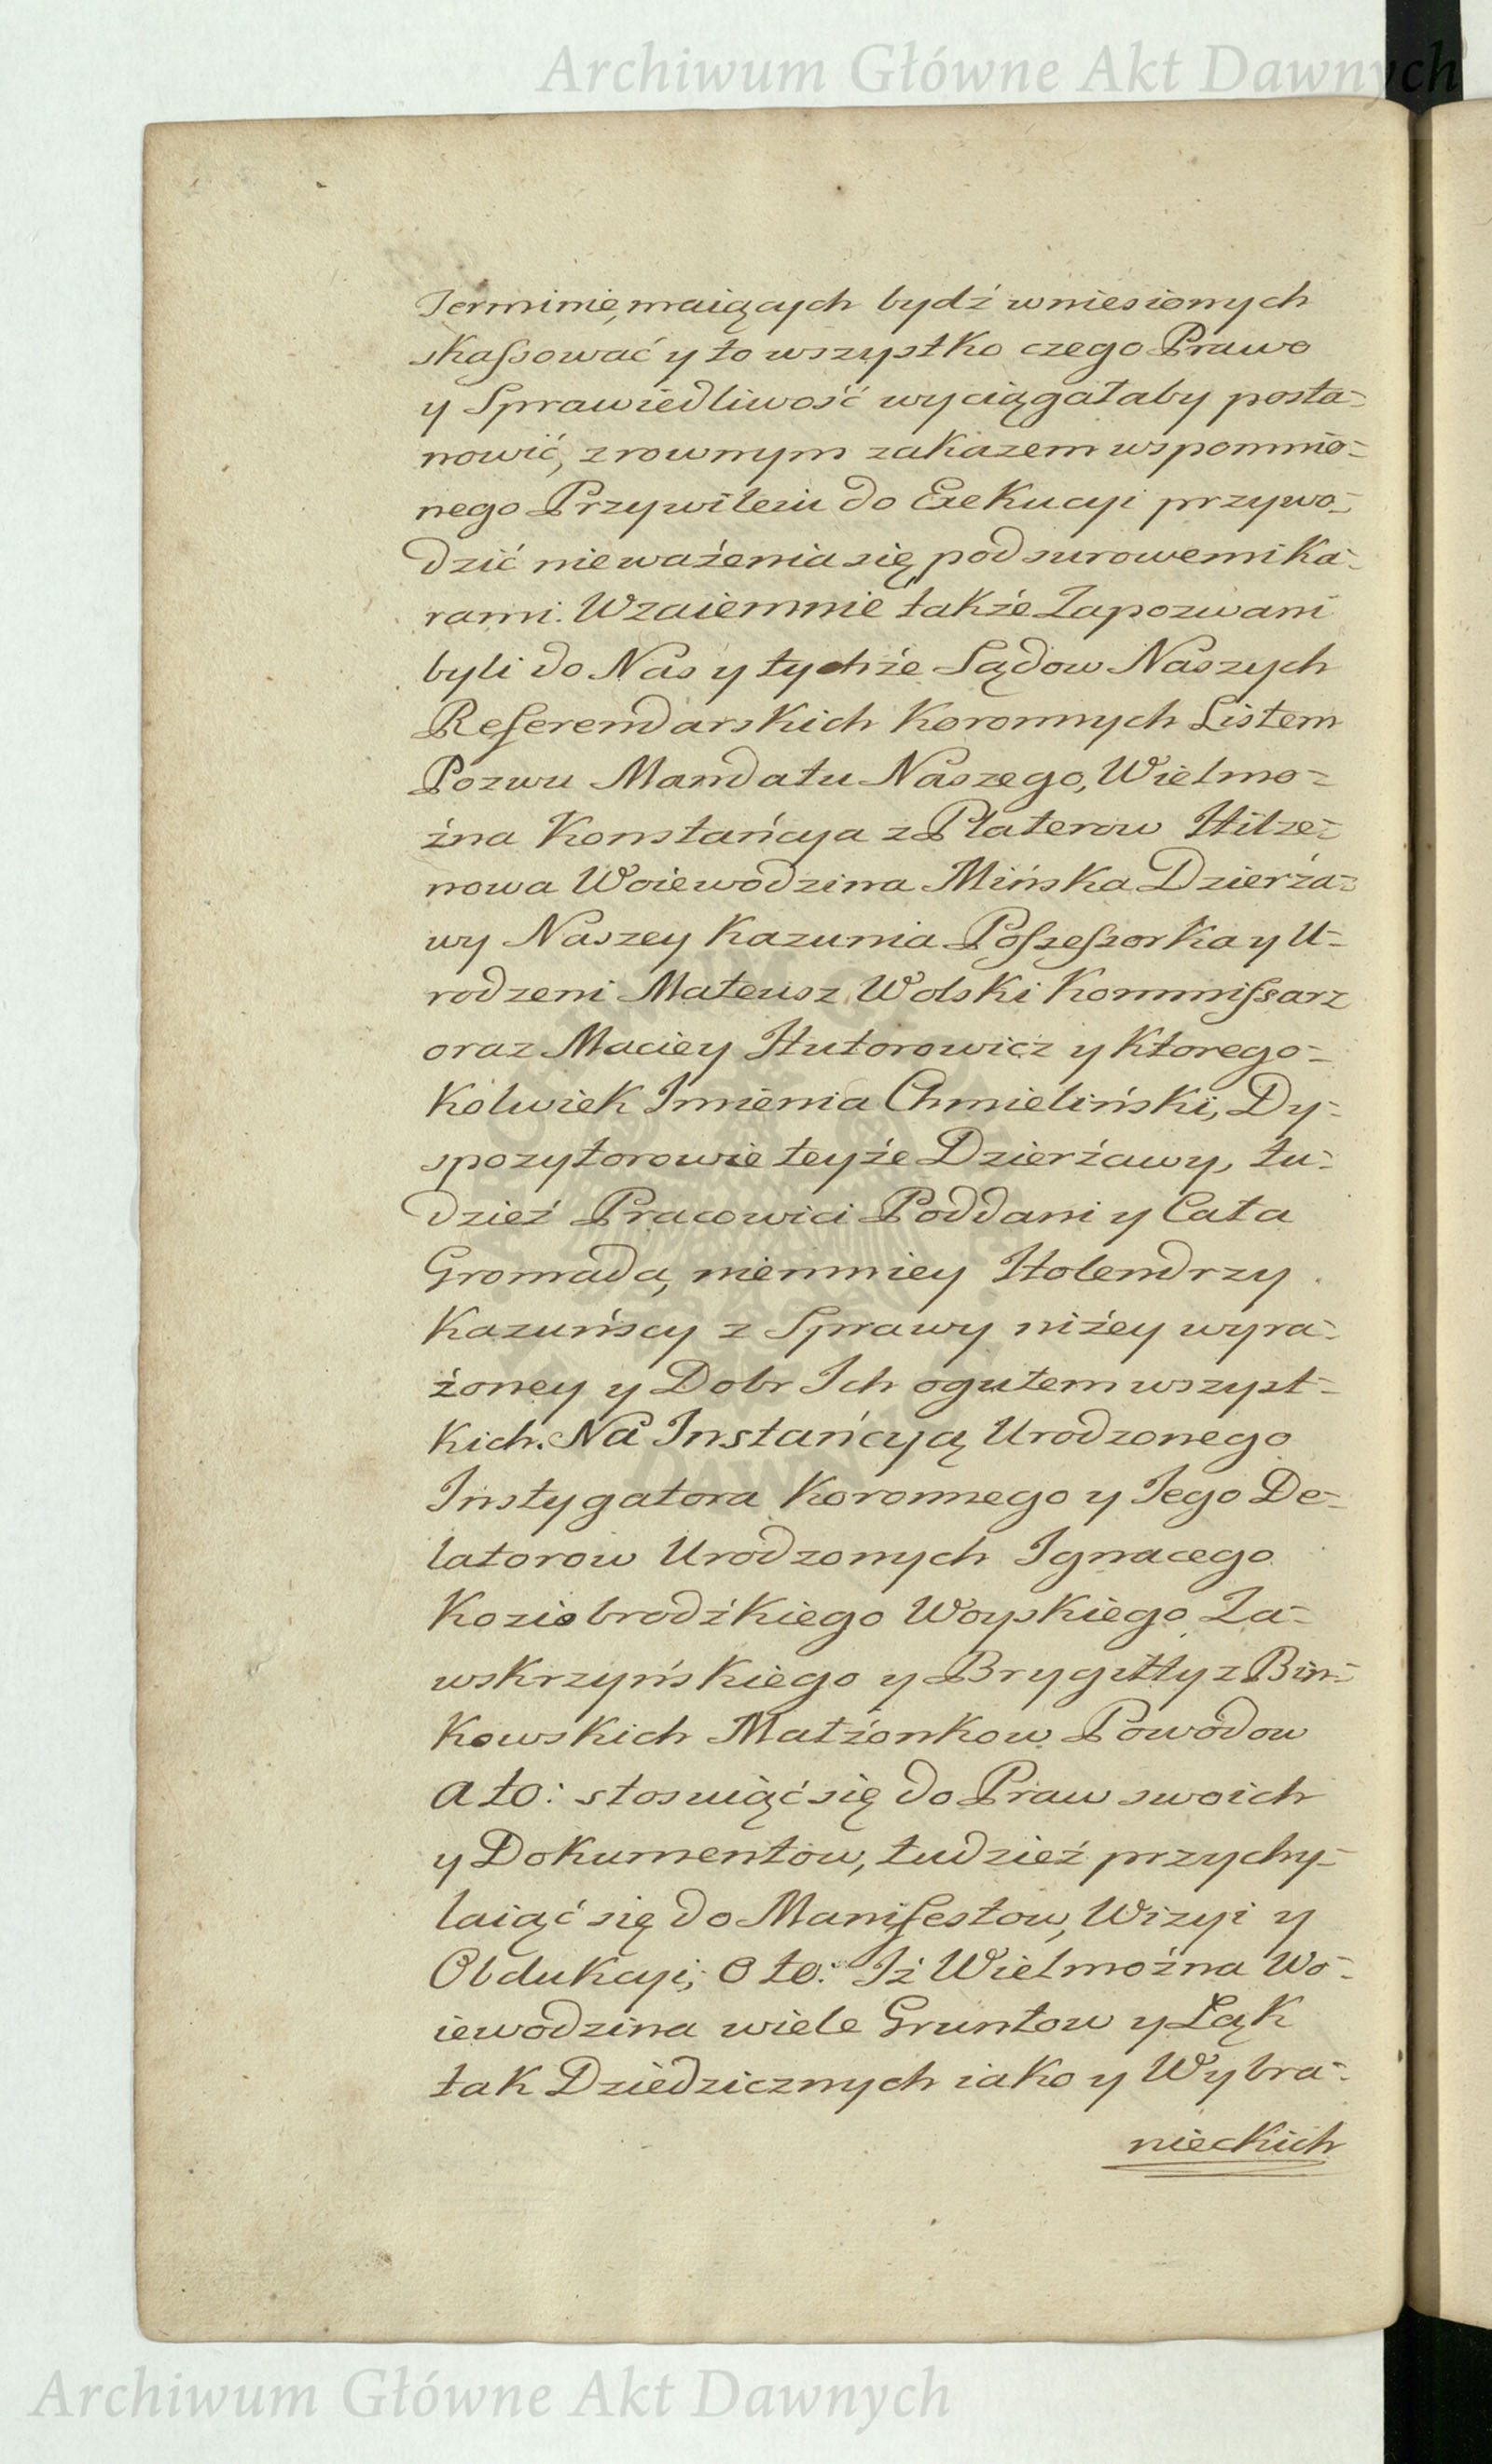 Archiwum Główne Akt Dawnych
Terminie, maiących bydź wniesionych
skassować y to wszystko czego Prawo
y Sprawiedliwość wyciągałaby posta-
nowić, z rownym zakazem wspomnio-
nego Przywileiu do Exekucyi przywo-
dzić nieważenia się pod surowemi ka-
rami. Wzaiemnie także Zapozwani
byli do Nas y tychże Sądow Naszych
Referendarskich Koronnych Listem
Pozwu Mandatu Naszego, Wielmo-
żna Konstańcya z Platerow Hilze-
nowa Woiewodzina Mińska Dzierża-
wy Naszey Kazunia Possessorka y U-
rodzeni Mateusz Wolski Kommissarz
oraz Maciey Hutorowicz y ktorego-
kolwiek Imienia Chmieliński, Dy-
spozytorowie teyże Dzierżawy, tu-
dzież Pracowici Poddani y Cała
Gromada, niemniey Holendrzy
Kazuńscy z Sprawy niżey wyra-
żoney y Dobr Ich ogułem wszyst-
kich. Na Instańcyą Urodzonego
Instygatora Koronnego y Iego De-
latorow Urodzonych Ignacego
Koziobrodźkiego Woyskiego Za-
wskrzyńskiego y Brygitty z Bin-
kowskich Małżonkow Powodow
a to: stosuiąć się do Praw swoich
y Dokumentow, tudzież przychy-
laiąć się do Manifestow, Wizyi y
Obdukcyi; O to: Iż Wielmożna Wo-
iewodzina wiele Gruntow y Łąk
tak Dziedzicznych iako y Wybra-
nieckich
ARCHIWUM GŁÓWNE AKT DAWNYCH
Archiwum Główne Akt Dawnych